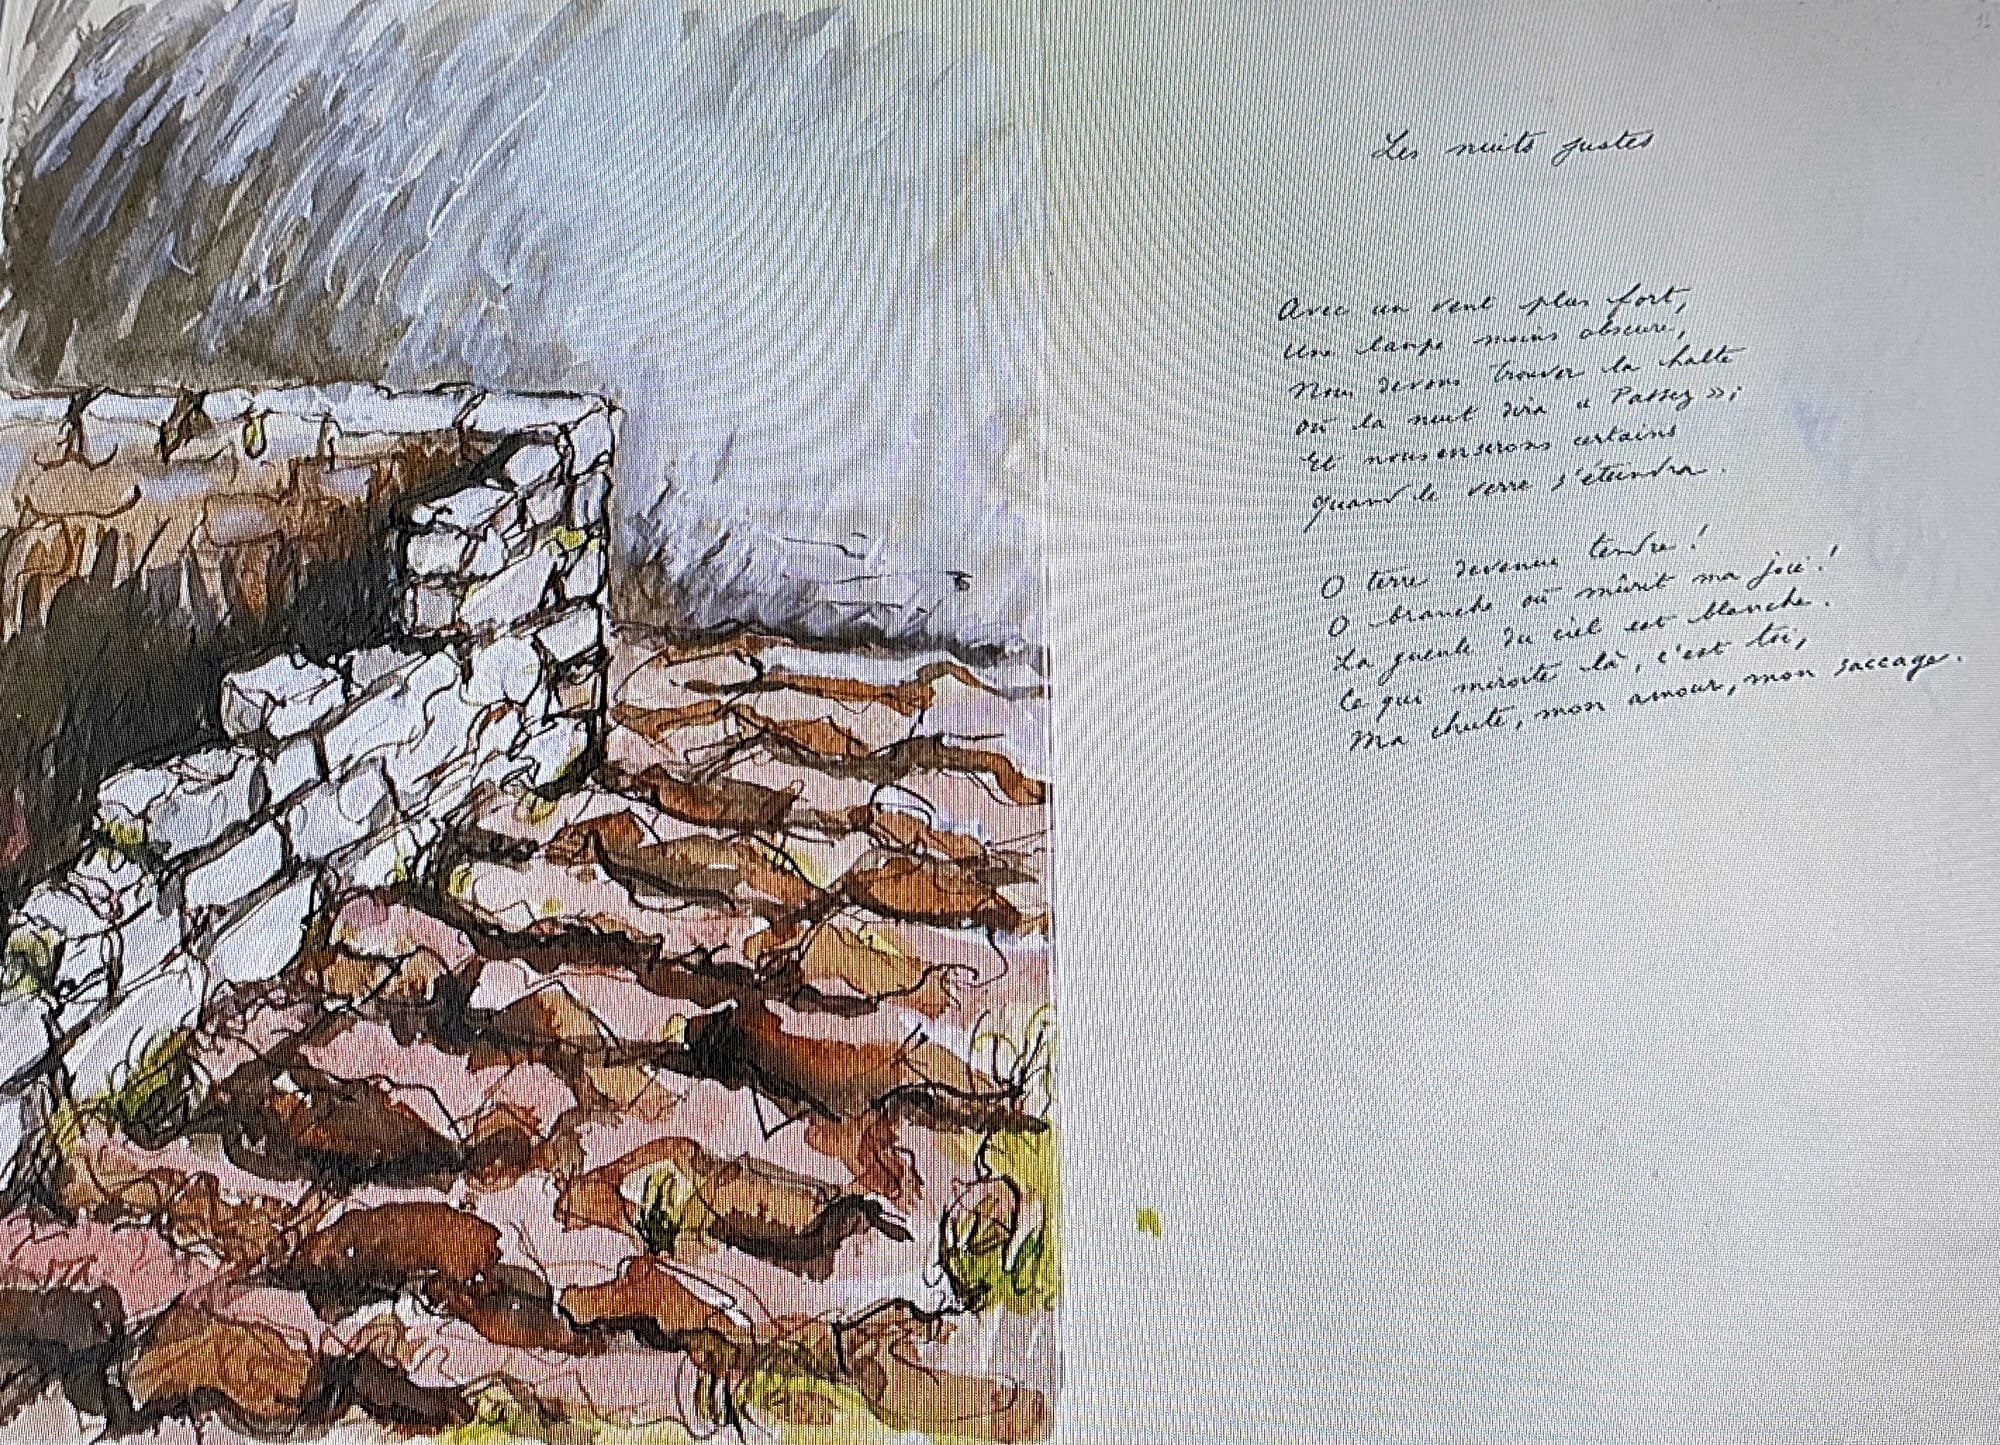 Les nuits justes
Avec un vent plus fort,
Une lampe moins obscure,
Nous devons trouver la halte
où la nuit dira « Passez » ;
Et nous en serons certains
quand le verre s'éteindra.
O terre devenue tendre !
O branche où mûrit ma joie !
La gueule du ciel est blanche.
Ce qui miroite là, c'est toi,
Ma chute, mon amour, mon saccage.